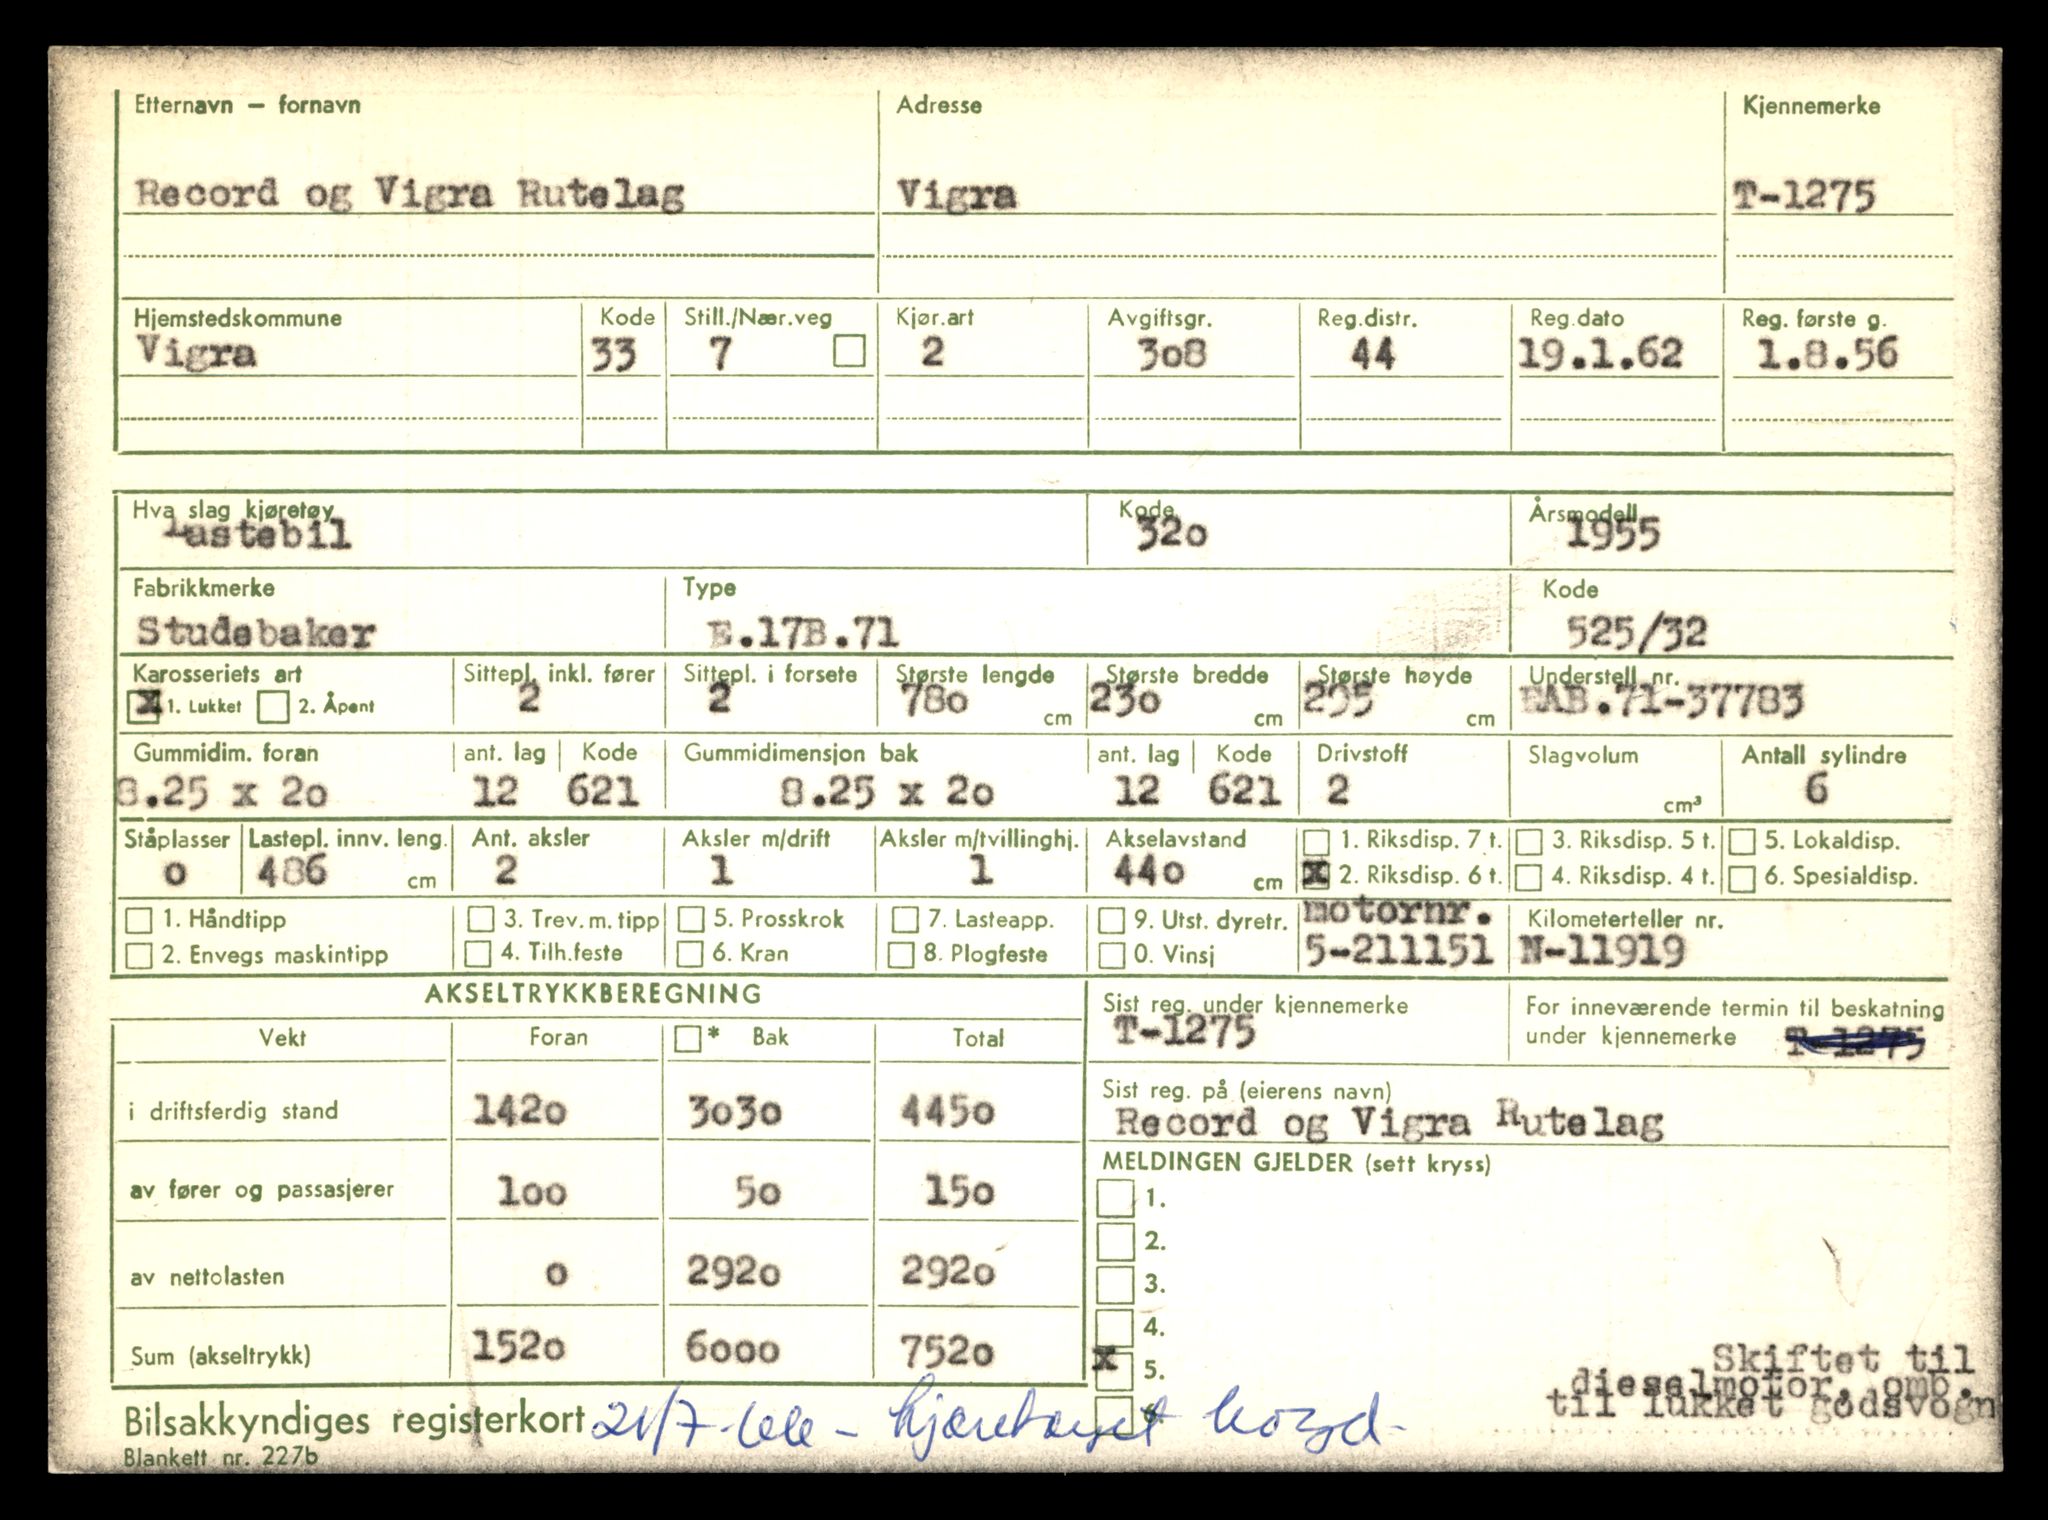 Etternavn – fornavn Adresse Kjennemerke
Record og Vigra Rutelag Vigra T-1275
Hjemstedskommune Kode Still./Nær.veg Kjør.art Avgiftsgr. Reg.distr. Reg.dato Reg. første g.
Vigra 33 7 2 308 44 19.1.62 1.8.56
Hva slag kjøretøy Kode Årsmodell
Lastebil 320 1955
Fabrikkmerke Type Kode
Studebaker E.17B.71 525/32
Karosseriets art Sittepl. inkl. fører Sittepl. i forsete Største lengde Største bredde Største høyde Understell nr.
X 1. Lukket 2. Åpent 2 2 780 cm 230 cm 295 cm EAB.71-37783
Gummidim. foran ant. lag Kode Gummidimensjon bak ant. lag Kode Drivstoff Slagvolum Antall sylindre
8.25 x 20 12 621 8.25 x 20 12 621 2 cm³ 6
Ståplasser Lastepl. innv. leng. Ant. aksler Aksler m/drift Aksler m/tvillinghj. Akselavstand 1. Riksdisp. 7 t. 3. Riksdisp. 5 t. 5. Lokaldisp.
0 486 cm 2 1 1 440 cm X 2. Riksdisp. 6 t. 4. Riksdisp. 4 t. 6. Spesialdisp.
1. Håndtipp 3. Trev. m. tipp 5. Prosskrok 7. Lasteapp. 9. Utst. dyretr. motornr. Kilometerteller nr.
2. Envegs maskintipp 4. Tilh.feste 6. Kran 8. Plogfeste 0. Vinsj 5-211151 N-11919
AKSELTRYKKBEREGNING Sist reg. under kjennemerke For inneværende termin til beskatning
T-1275 under kjennemerke T-1275
Vekt Foran * Bak Total
i driftsferdig stand 1420 3030 4450
Sist reg. på (eierens navn)
Record og Vigra Rutelag
MELDINGEN GJELDER (sett kryss)
av fører og passasjerer 100 50 150
1.
2.
av nettolasten 0 2920 2920
3.
4.
Sum (akseltrykk) 1520 6000 7520
X 5. Skiftet til
dieselmotor, omb.
til lukket godsvogn
6.
Bilsakkyndiges registerkort 21/7-66 – kjøretøyet
Blankett nr. 227b